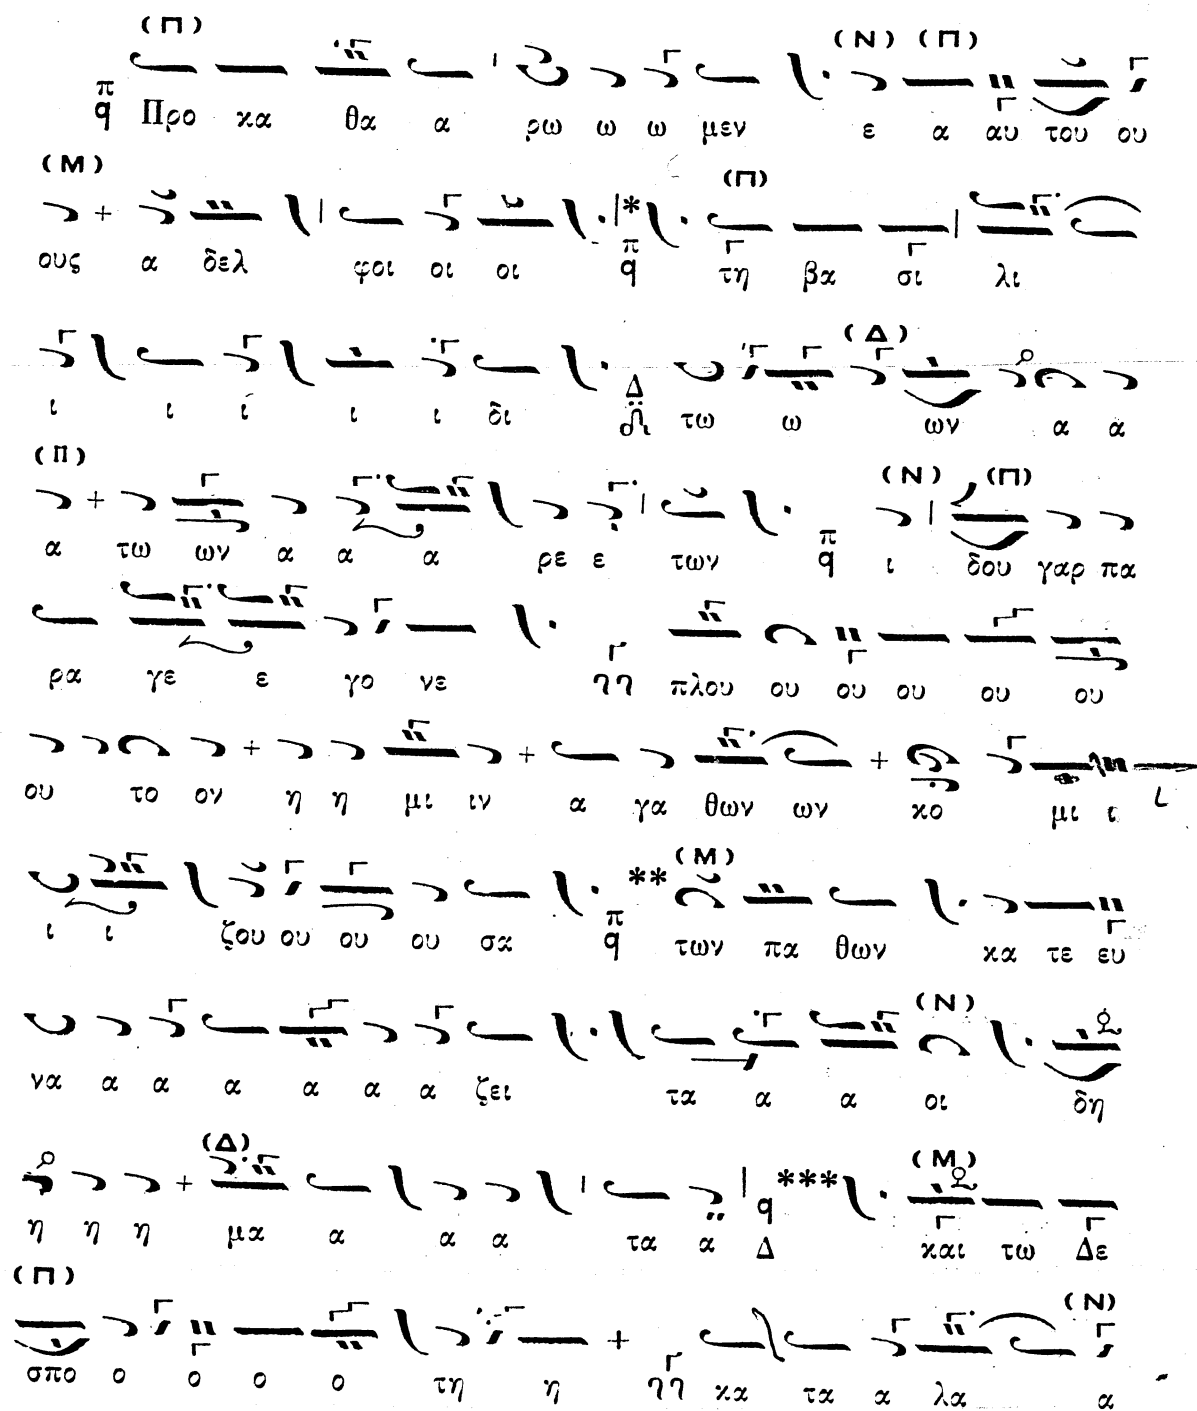 (Π) (Ν) (Π)
π q Προ κα θα α ρω ω ω μεν ε α αυ του ου
(Μ) * (Π)
ους α δελ φοι οι οι π q τη βα σι λι
(Δ)
ι ι ι ι ι δι Δ τω ω ων α α
(Π) (Ν) (Π)
α τω ων α α α ρε ε των π q ι δου γαρ πα
ρα γε ε γο νε Γ πλου ου ου ου ου ου
ου το ον η η μι ιν α γα θων ων κο μι ι
** (Μ)
ι ι ζου ου ου ου σα π q των πα θων κα τε ευ
(Ν)
να α α α α α α ζει τα α α οι δη
(Δ) *** (Μ)
η η η μα α α α τα α q Δ και τω Δε
(Π) (Ν)
σπο ο ο ο ο τη η Γ κα τα α λα α